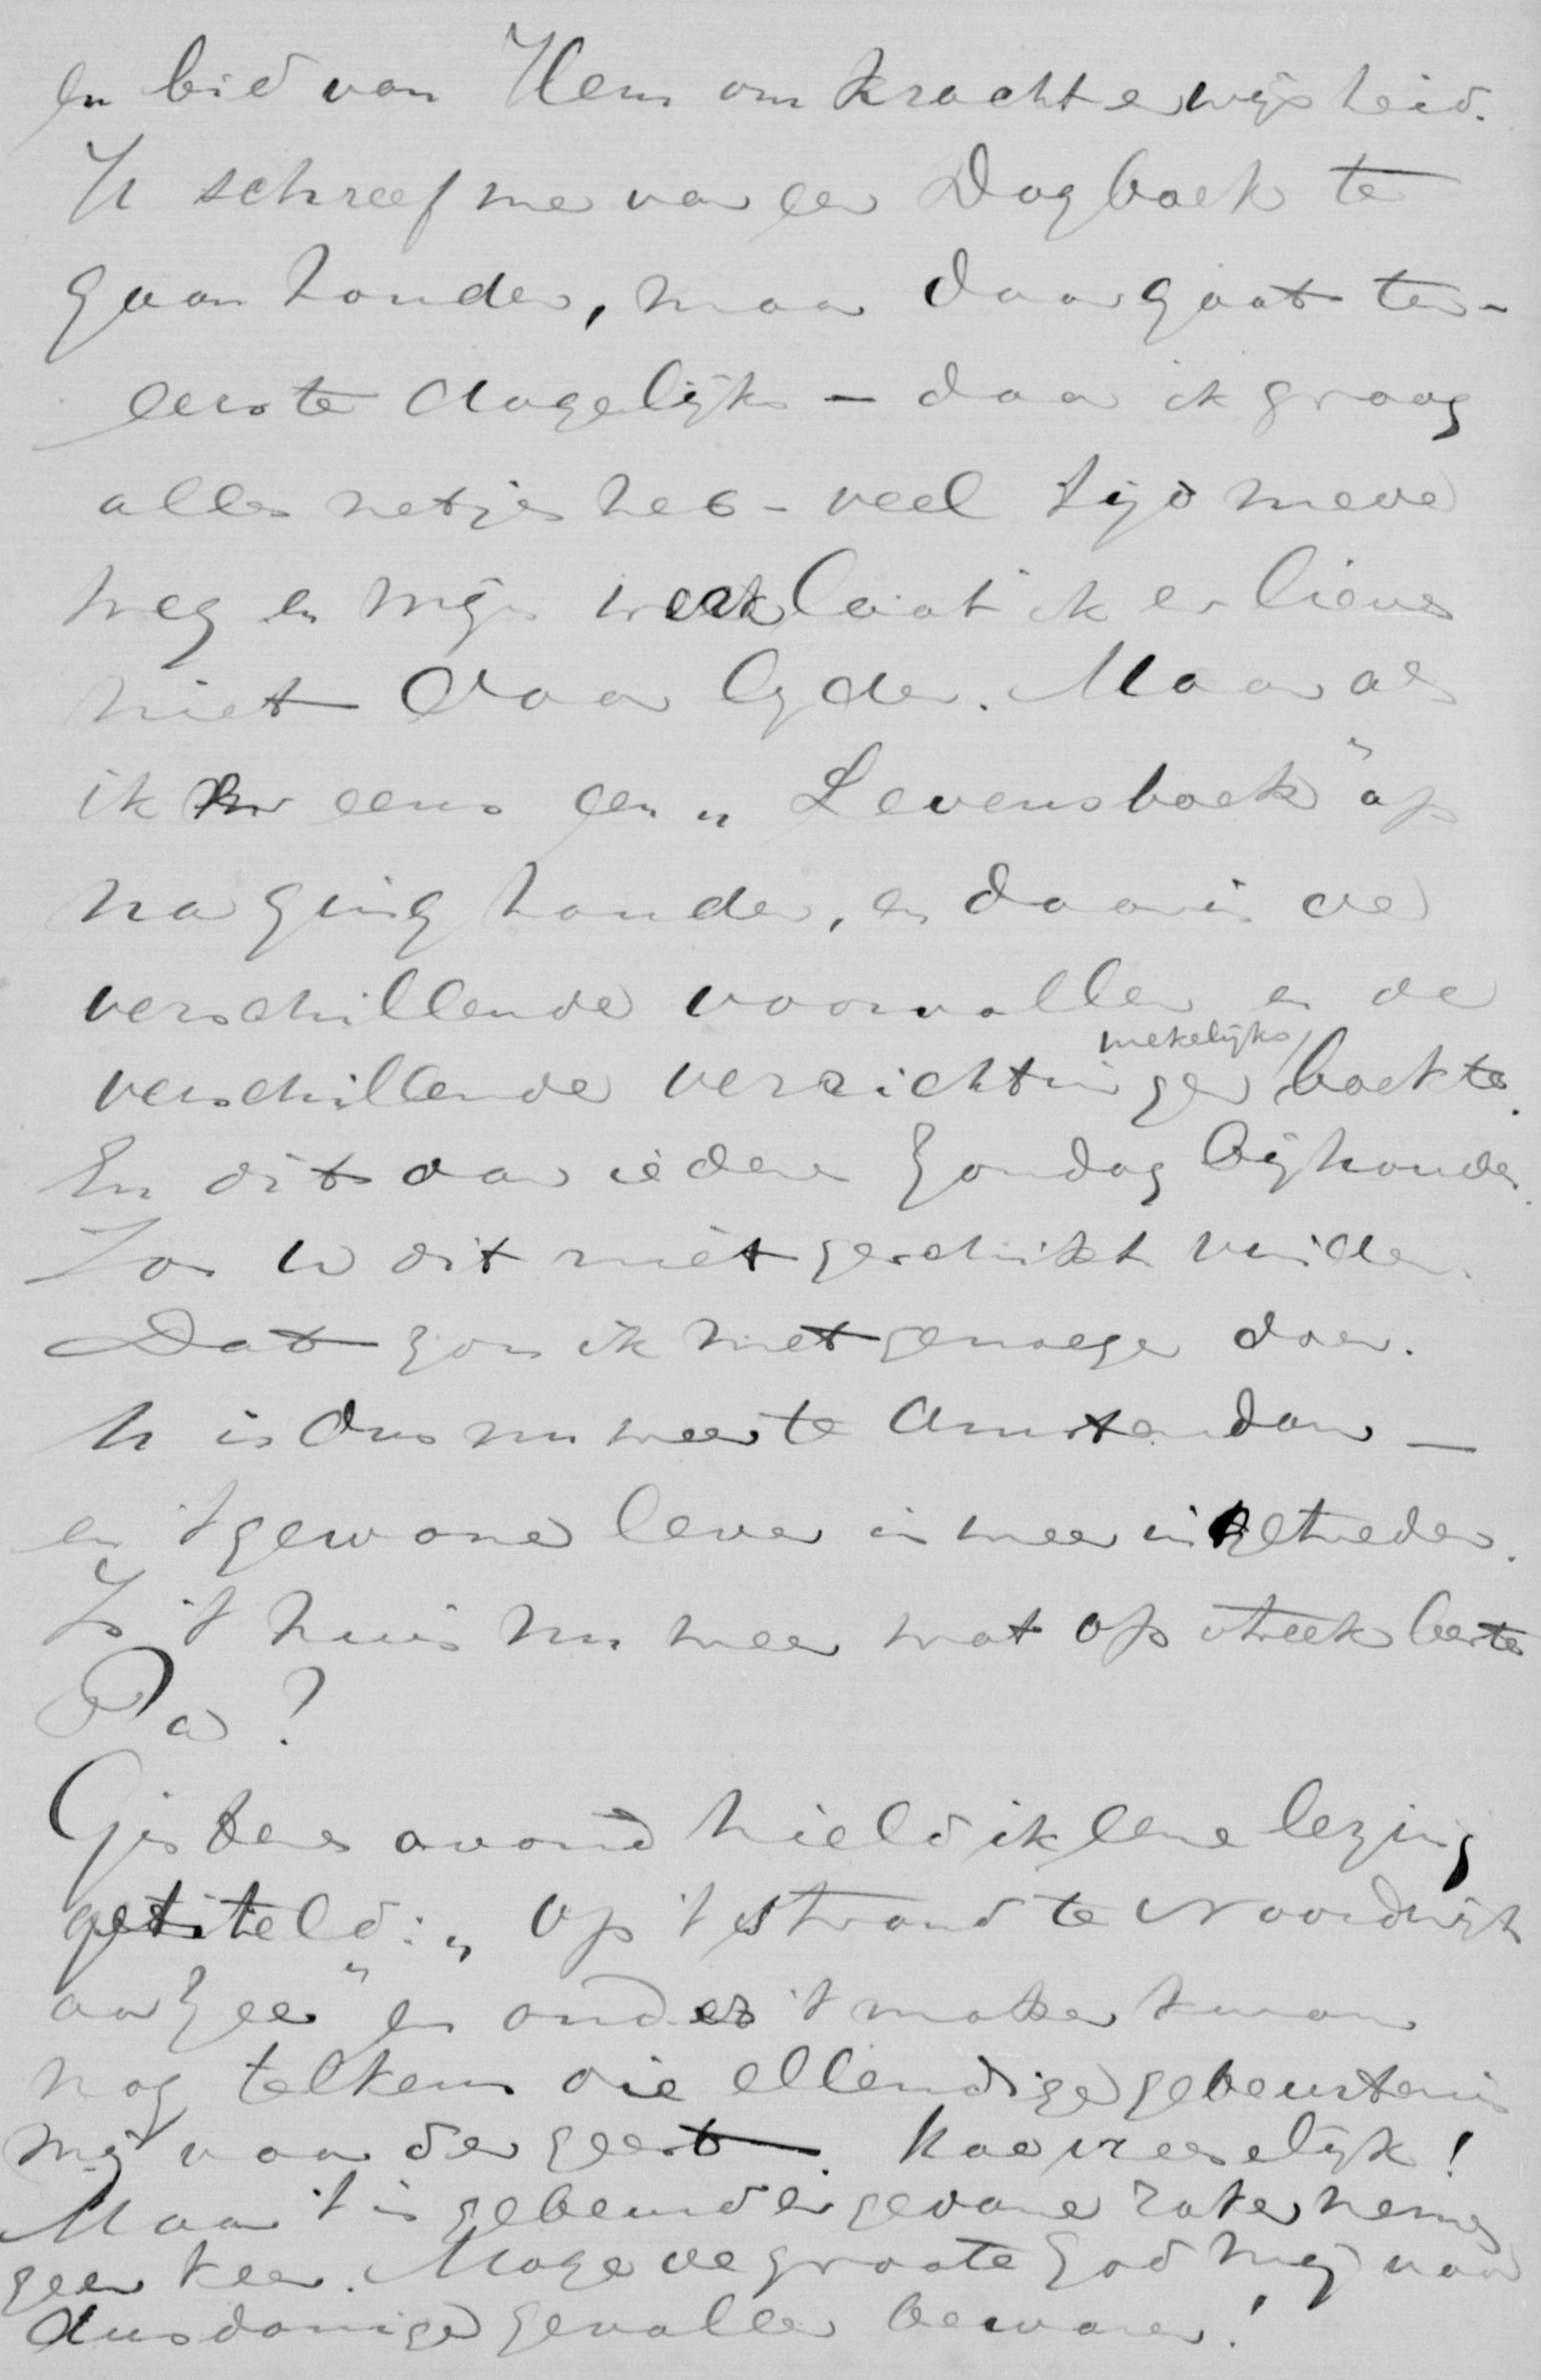 en bid van Hem om kracht en wijsheid.
U schreef me van een Dagboek te
gaan houden, maar daar gaat ten-
eerste dagelijks – daar ik graag
alles netjes heb – veel tijd mede
weg en mijn werk laat ik er liever
niet door lijden. Maar als
ik er eens een „Levensboek" op
na ging houden, en daarin de
verschillende voorvallen en de
wekelijks
verschillende verrichtingen boekte.
En dit dan iederen Zondag bijhouden.
Zou U dit niet geschikt vinden.
Dat zou ik met genoegen doen.
U is dus nu weer te Amsterdam —
en 't gewone leven is weer ingetreden.
Is 't huis nu weer wat op streek beste
Pa?
Gisteren avond hield ik eene lezing
getiteld: „Op 't strand te Noordwijk
aan Zee" en onder 't maken kwam
nog telkens die ellendige gebeurtenis
mij voor den geest. Hoe vreeselijk!
Maar 't is gebeurd en gedane zaken nemen
geen keer. Moge de groote God mij voor
dusdanige gevallen bewaren!